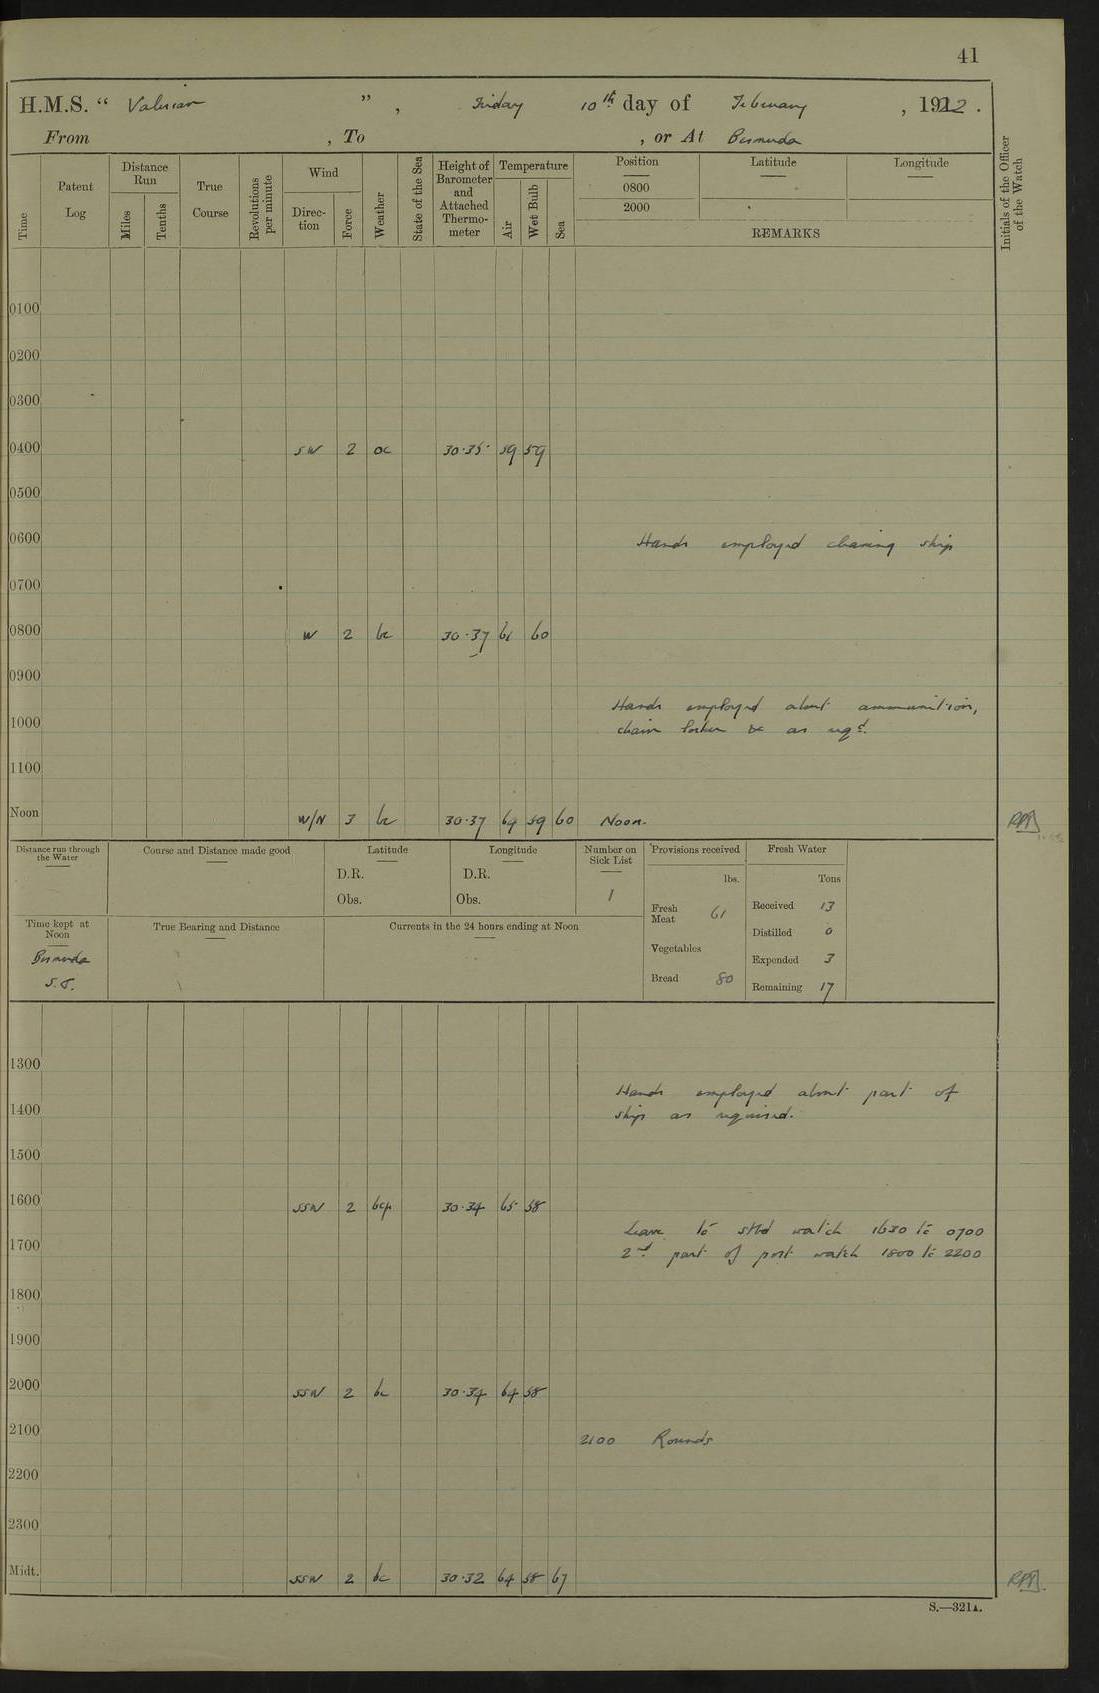 41
H.M.S. “ Valerian ” , Friday 10th day of February , 1922 .
From , To , or At Bermuda
Time
Patent Log
Distance Run
Miles
Tenths
True Course
Revolutions per minute
Wind
Direction
Force
Weather
State of the Sea
Height of Barometer and Attached Thermometer
Temperature
Air
Wet Bulb
Sea
Position
0800
2000
Latitude
Longitude
REMARKS
Initials of the Officer of the Watch
0100
0200
0300
0400 SW 2 oc 30.35 59 59
0500
0600 Hands employed cleaning ship
0700
0800 W 2 bc 30.37 61 60
0900
Hands employed about ammunition,
1000 chain locker &c as reqd.
1100
Noon W/N 3 bc 30.37 64 59 60 Noon.
Distance run through the Water
Course and Distance made good
Latitude
D.R.
Obs.
Longitude
D.R.
Obs.
Number on Sick List
1
Provisions received
lbs.
Fresh Meat 61
Vegetables
Bread 80
Fresh Water
Tons
Received 13
Distilled 0
Expended 3
Remaining 17
Time kept at Noon
Bermuda
S.T.
True Bearing and Distance
Currents in the 24 hours ending at Noon
1300
Hands employed about part of
1400 ship as required.
1500
1600 SSW 2 bcp 30.34 65 58
Leave to stbd watch 1630 to 0700
1700 2nd part of port watch 1800 to 2200
1800
1900
2000 SSW 2 bc 30.34 64 58
2100 2100 Rounds
2200
2300
Midt. SSW 2 bc 30.32 64 58 67
S.—321A.